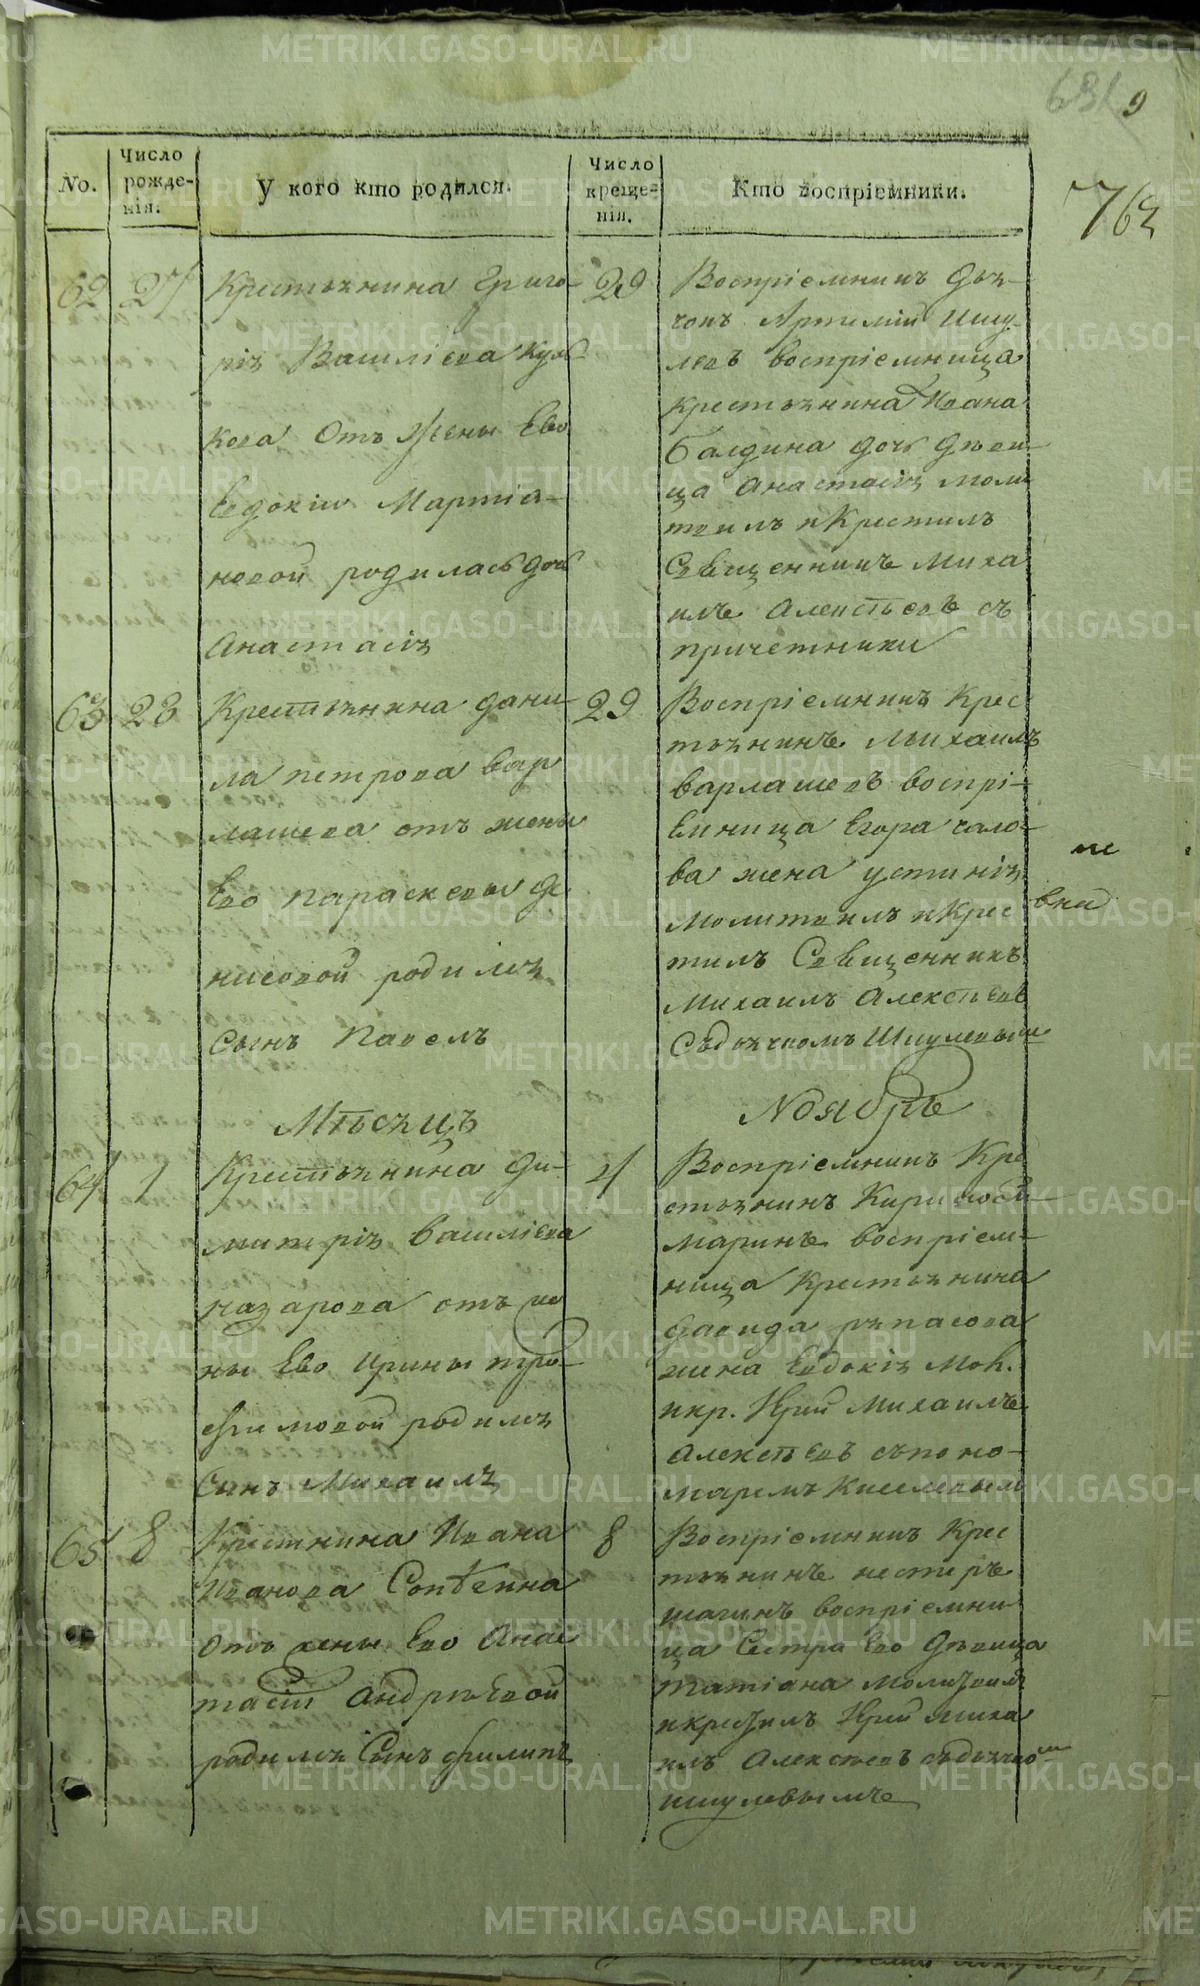 631 9
763
No.
Число рожде-нія.
У кого кто родился.
Число креще-нія.
Кто воспріемники.
62 27
Крестьянина Григо-
рія Василіева
кова Отъ Жены Ево
Евдокіи Мартіа-
новой родилась дочь
Анастасія
29
Воспріемникъ дья-
чокъ Артемій Ишу-
левъ воспріемница
крестьянина Ивана
балдина дочь девы-
ца Анастасія моли
твилъ и Крестилъ
Священникъ Миха
илъ Алексѣевъ съ
причетники
63 28
Крестьянина дани-
ла петрова вар
лашева отъ жены
Ево параскевы де
нисовой родился
Сынъ Павелъ
29
Воспріемникъ Крес
тьянинъ Михаилъ
варлашевъ воспрі-
емница Егора чало-
ва жена устинія
Молитвилъ и Крес
тилъ Священникъ
Михаилъ Алексѣевъ
Съдьячкомъ Ишулевым
Мѣсяцъ Ноябрь
64 1
Крестьянина Ди-
митрія василіева
назарова отъ же
ны Ево ирины тро-
фимовой родился
Сынъ Михаилъ
4
Воспріемникъ Кре
стьянинъ
маринъ воспріем-
ница Крестьянина
давида
жена Евдокія мол.
икр. Іерей Михаилъ
Алексѣевъ съпоно-
маремъ Киселевым
65 8
Крестьнина Ивана
Иванова
Отъ жены Ево Анас
тасіи Андрѣевой
родился Сынъ филипъ
8
Воспріемникъ Крес
тьянинъ нестеръ
шагинъ воспріемни
ца Сестра Ево Девица
татіана молитвилъ
икрестилъ Іерей миха
илъ Алексѣевъ съдьячком
ишулевымъ
METRIKI.GASO-URAL.RU